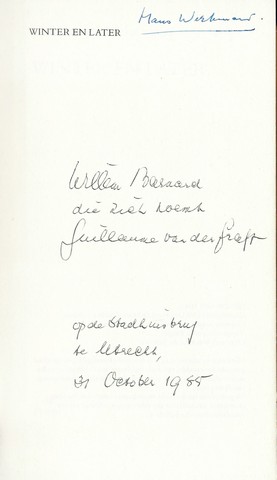 Hans Werkman.
WINTER EN LATER
Willem Barnard
die zich noemt
Guillaume van der Graft
op de Stadhuisbrug
te Utrecht,
31 October 1985